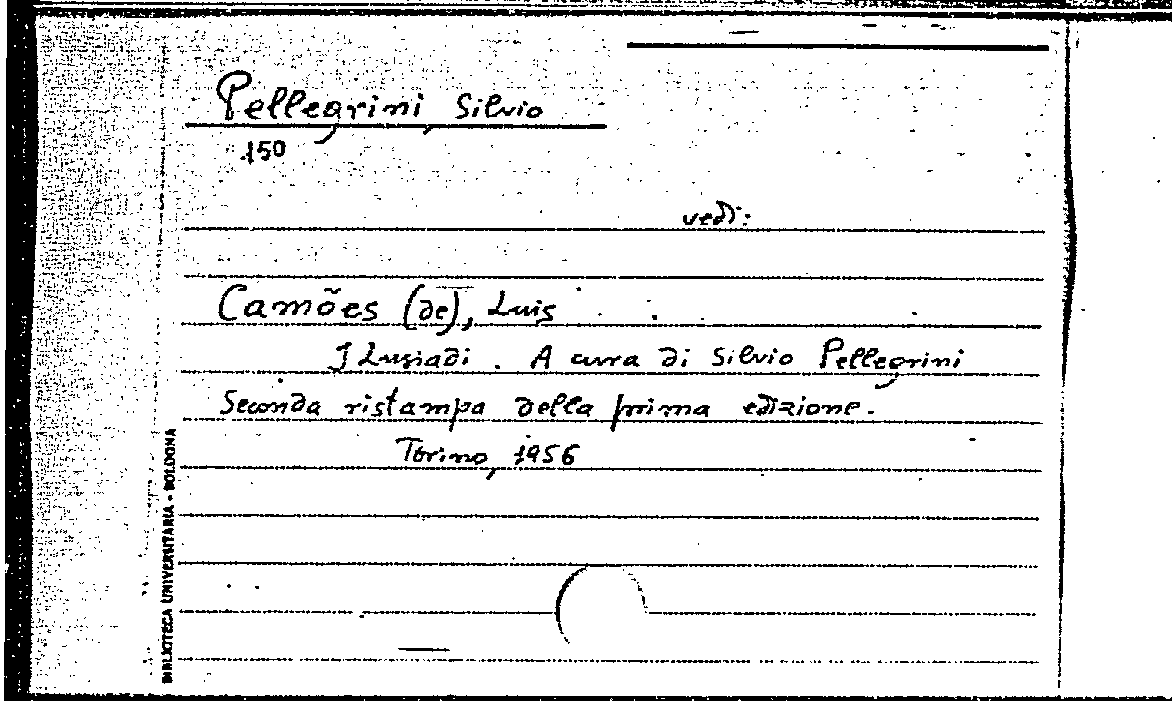 Pellegrini, Silvio
150
vedi:
Camões (de), Luis
I Lusiadi. A cura di Silvio Pellegrini
Seconda ristampa della prima edizione.
Torino, 1956
BIBLIOTECA UNIVERSITARIA - BOLOGNA